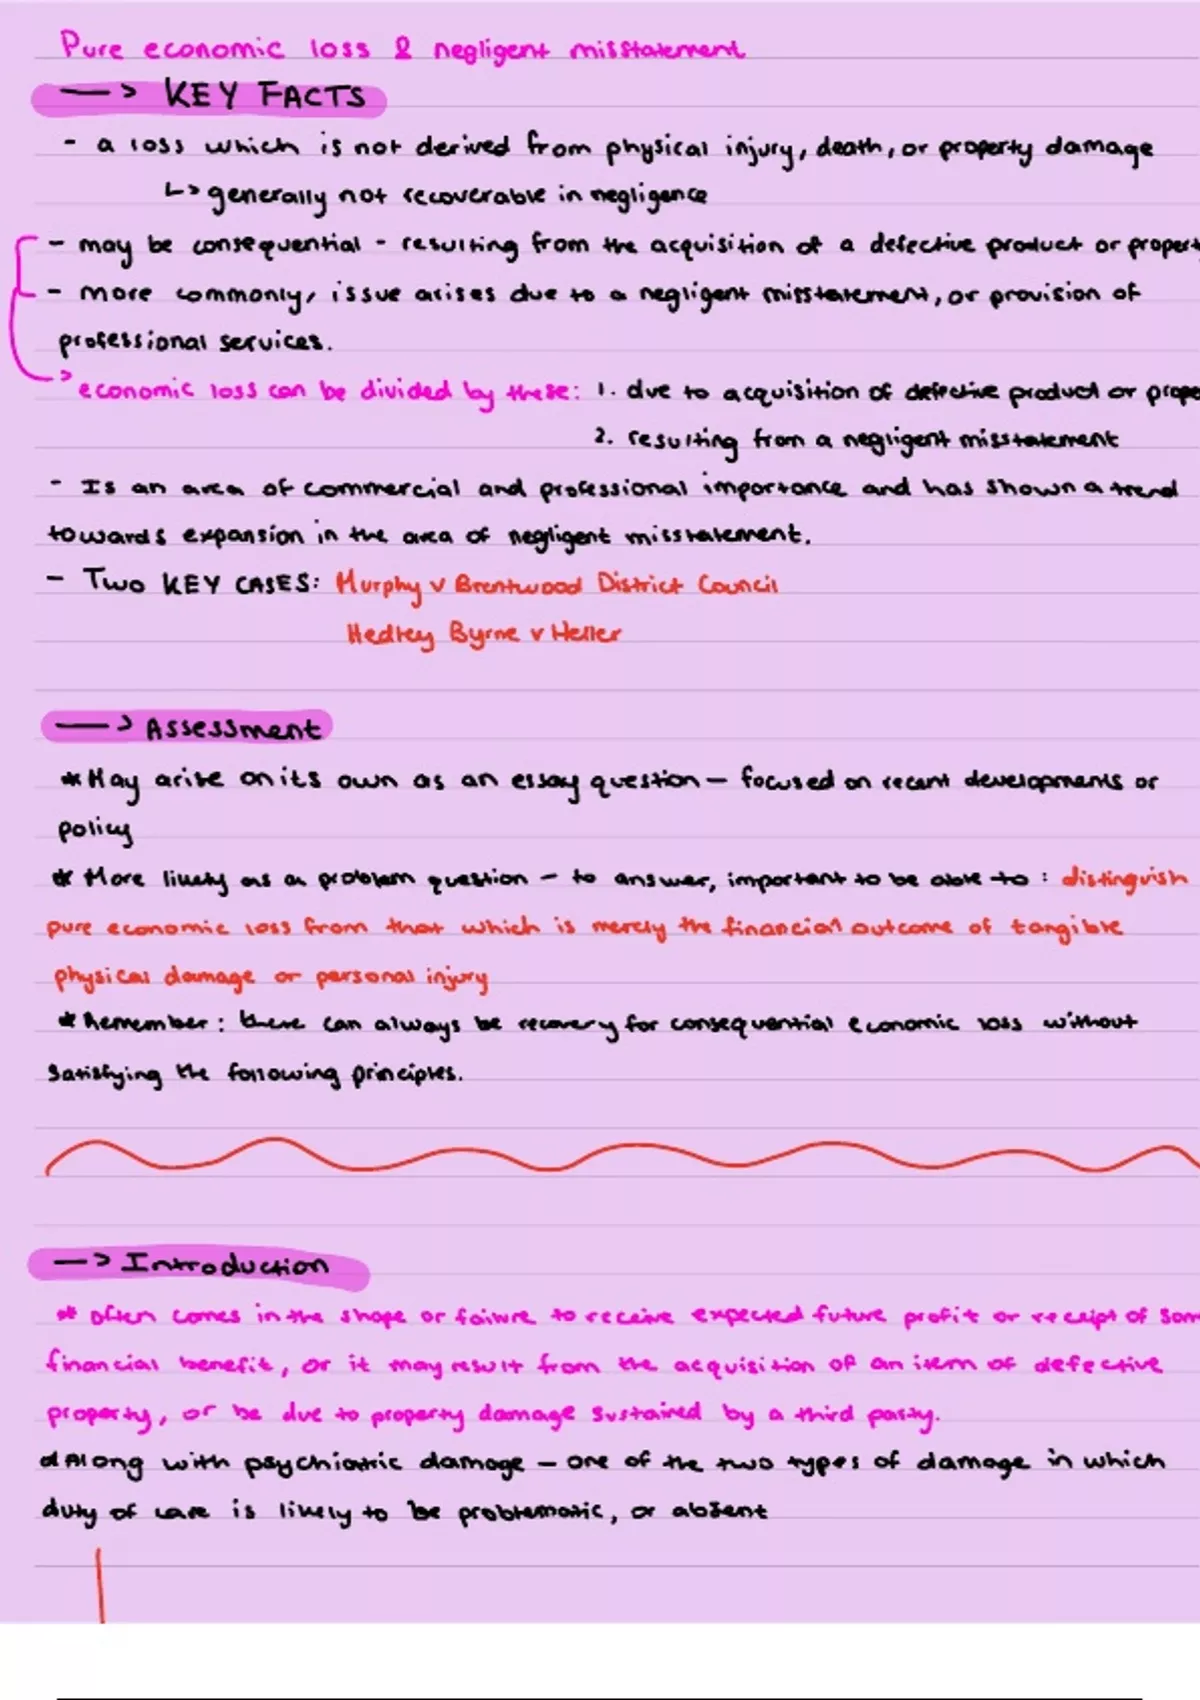 Pure economic loss & negligent misstatement
—> KEY FACTS
- a loss which is not derived from physical injury, death, or property damage
↳ generally not recoverable in negligence
- may be consequential - resulting from the acquisition of a defective product or propert
- more commonly, issue arises due to a negligent misstatement, or provision of
professional services.
> economic loss can be divided by these: 1. due to acquisition of defective product or prope
2. resulting from a negligent misstatement
- Is an area of commercial and professional importance and has shown a trend
towards expansion in the area of negligent misstatement.
- Two KEY CASES: Murphy v Brentwood District Council
Hedley Byrne v Heller
—> Assessment
* May arise on its own as an essay question — focused on recent developments or
policy
* More likely as a problem question - to answer, important to be able to : distinguish
pure economic loss from that which is merely the financial outcome of tangible
physical damage or personal injury
* Remember : there can always be recovery for consequential economic loss without
satisfying the following principles.
—> Introduction
* often comes in the shape or failure to receive expected future profit or receipt of som
financial benefit, or it may result from the acquisition of an item of defective
property, or be due to property damage sustained by a third party.
* Along with psychiatric damage — one of the two types of damage in which
duty of care is likely to be problematic, or absent